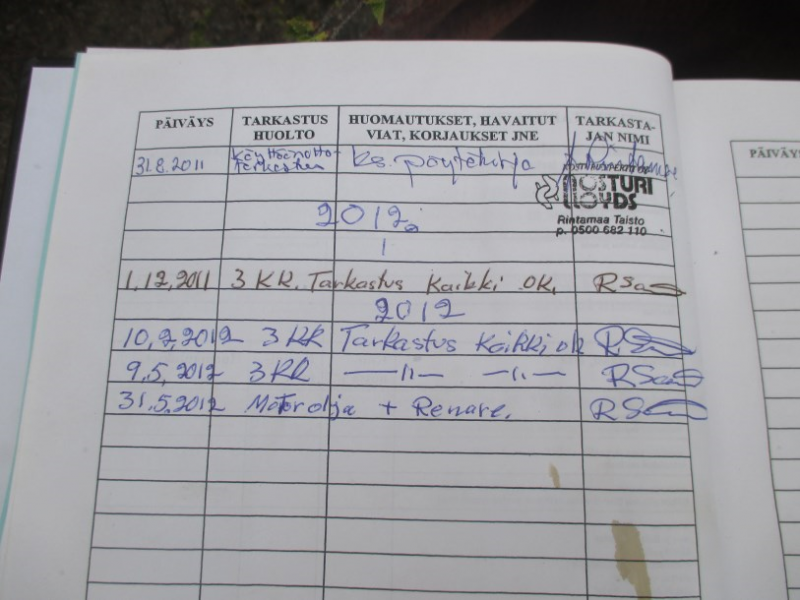 PÄIVÄYS TARKASTUS HUOLTO HUOMAUTUKSET, HAVAITUT VIAT, KORJAUKSET JNE TARKASTA-JAN NIMI
PÄIVÄYS
31.8.2011 Käyttöönotto-tarkastus ks. pöytäkirja
NOSTURI
LLOYDS
Rintamaa Taisto
p. 0500 682 110
2012
1
1.12.2011 3 KK. Tarkastus Kaikki OK.
2012
10.2.2012 3 KK Tarkastus Kaikki ok
9.5.2012 3 KK —11— —11—
31.5.2012 Motorolja + Renare.